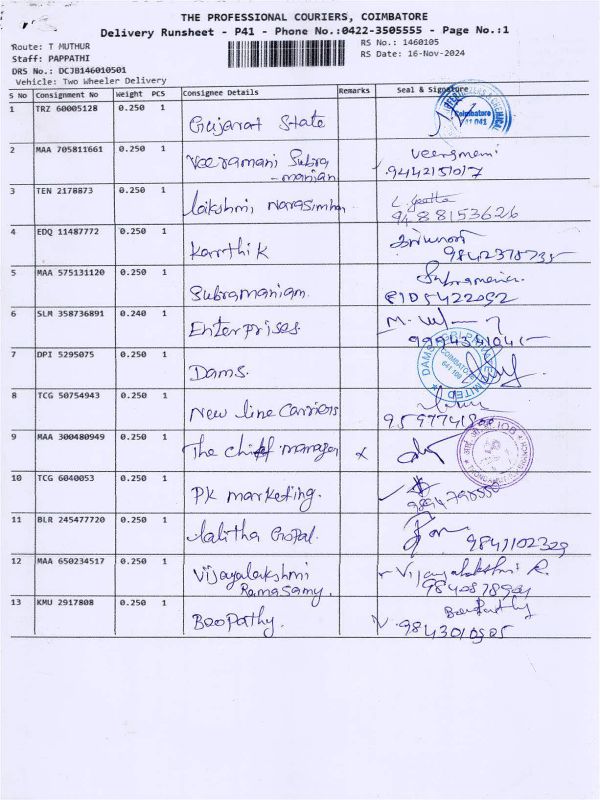 THE PROFESSIONAL COURIERS, COIMBATORE
Delivery Runsheet - P41 - Phone No.:0422-3505555 - Page No.:1
Route: T MUTHUR
RS No.: 1460105
Staff: PAPPATHI
RS Date: 16-Nov-2024
DRS No.: DCJB146010501
Vehicle: Two Wheeler Delivery
S No Consignment No Weight PCS Consignee Details Remarks Seal & Signature
1 TRZ 60005128 0.250 1 Gujarat State
Coimbatore
2 MAA 705811661 0.250 1 Veeramani Subra
-manian
Veeramani
9442151017
3 TEN 2178873 0.250 1 Lakshmi Narasimhan
9488153626
4 EDQ 11487772 0.250 1 Karrthik
5 MAA 575131120 0.250 1 Subramaniam.
6 SLM 358736891 0.240 1 Enterprises
7 DPI 5295075 0.250 1 Dams.
COIMBATORE
8 TCG 50754943 0.250 1 New line Carriers
9 MAA 300480949 0.250 1 The chief manager x
10 TCG 6040053 0.250 1 PK marketing.
11 BLR 245477720 0.250 1 Lalitha Gopal.
9841102329
12 MAA 650234517 0.250 1 Vijayalakshmi
Ramasamy.
Vijayalakshmi R.
13 KMU 2917808 0.250 1 BooPathy.
Boopathy